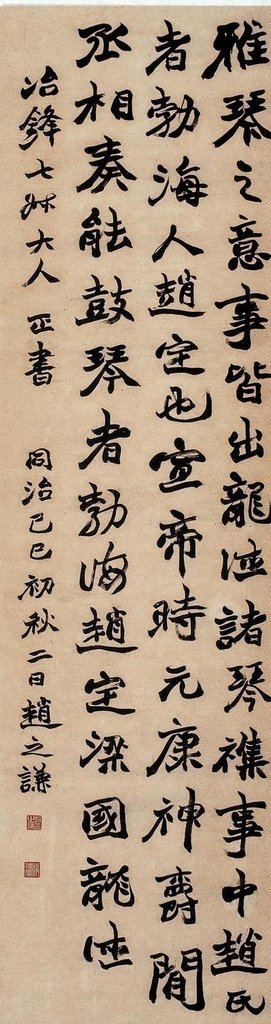 雅琴之意事皆出龍德諸琴襍事中趙氏
者勃海人趙定也宣帝時元康神爵閒
丞相奏能鼓琴者勃海趙定梁國龍德
冶鋒七叔大人正書 同治己巳初秋二日趙之謙